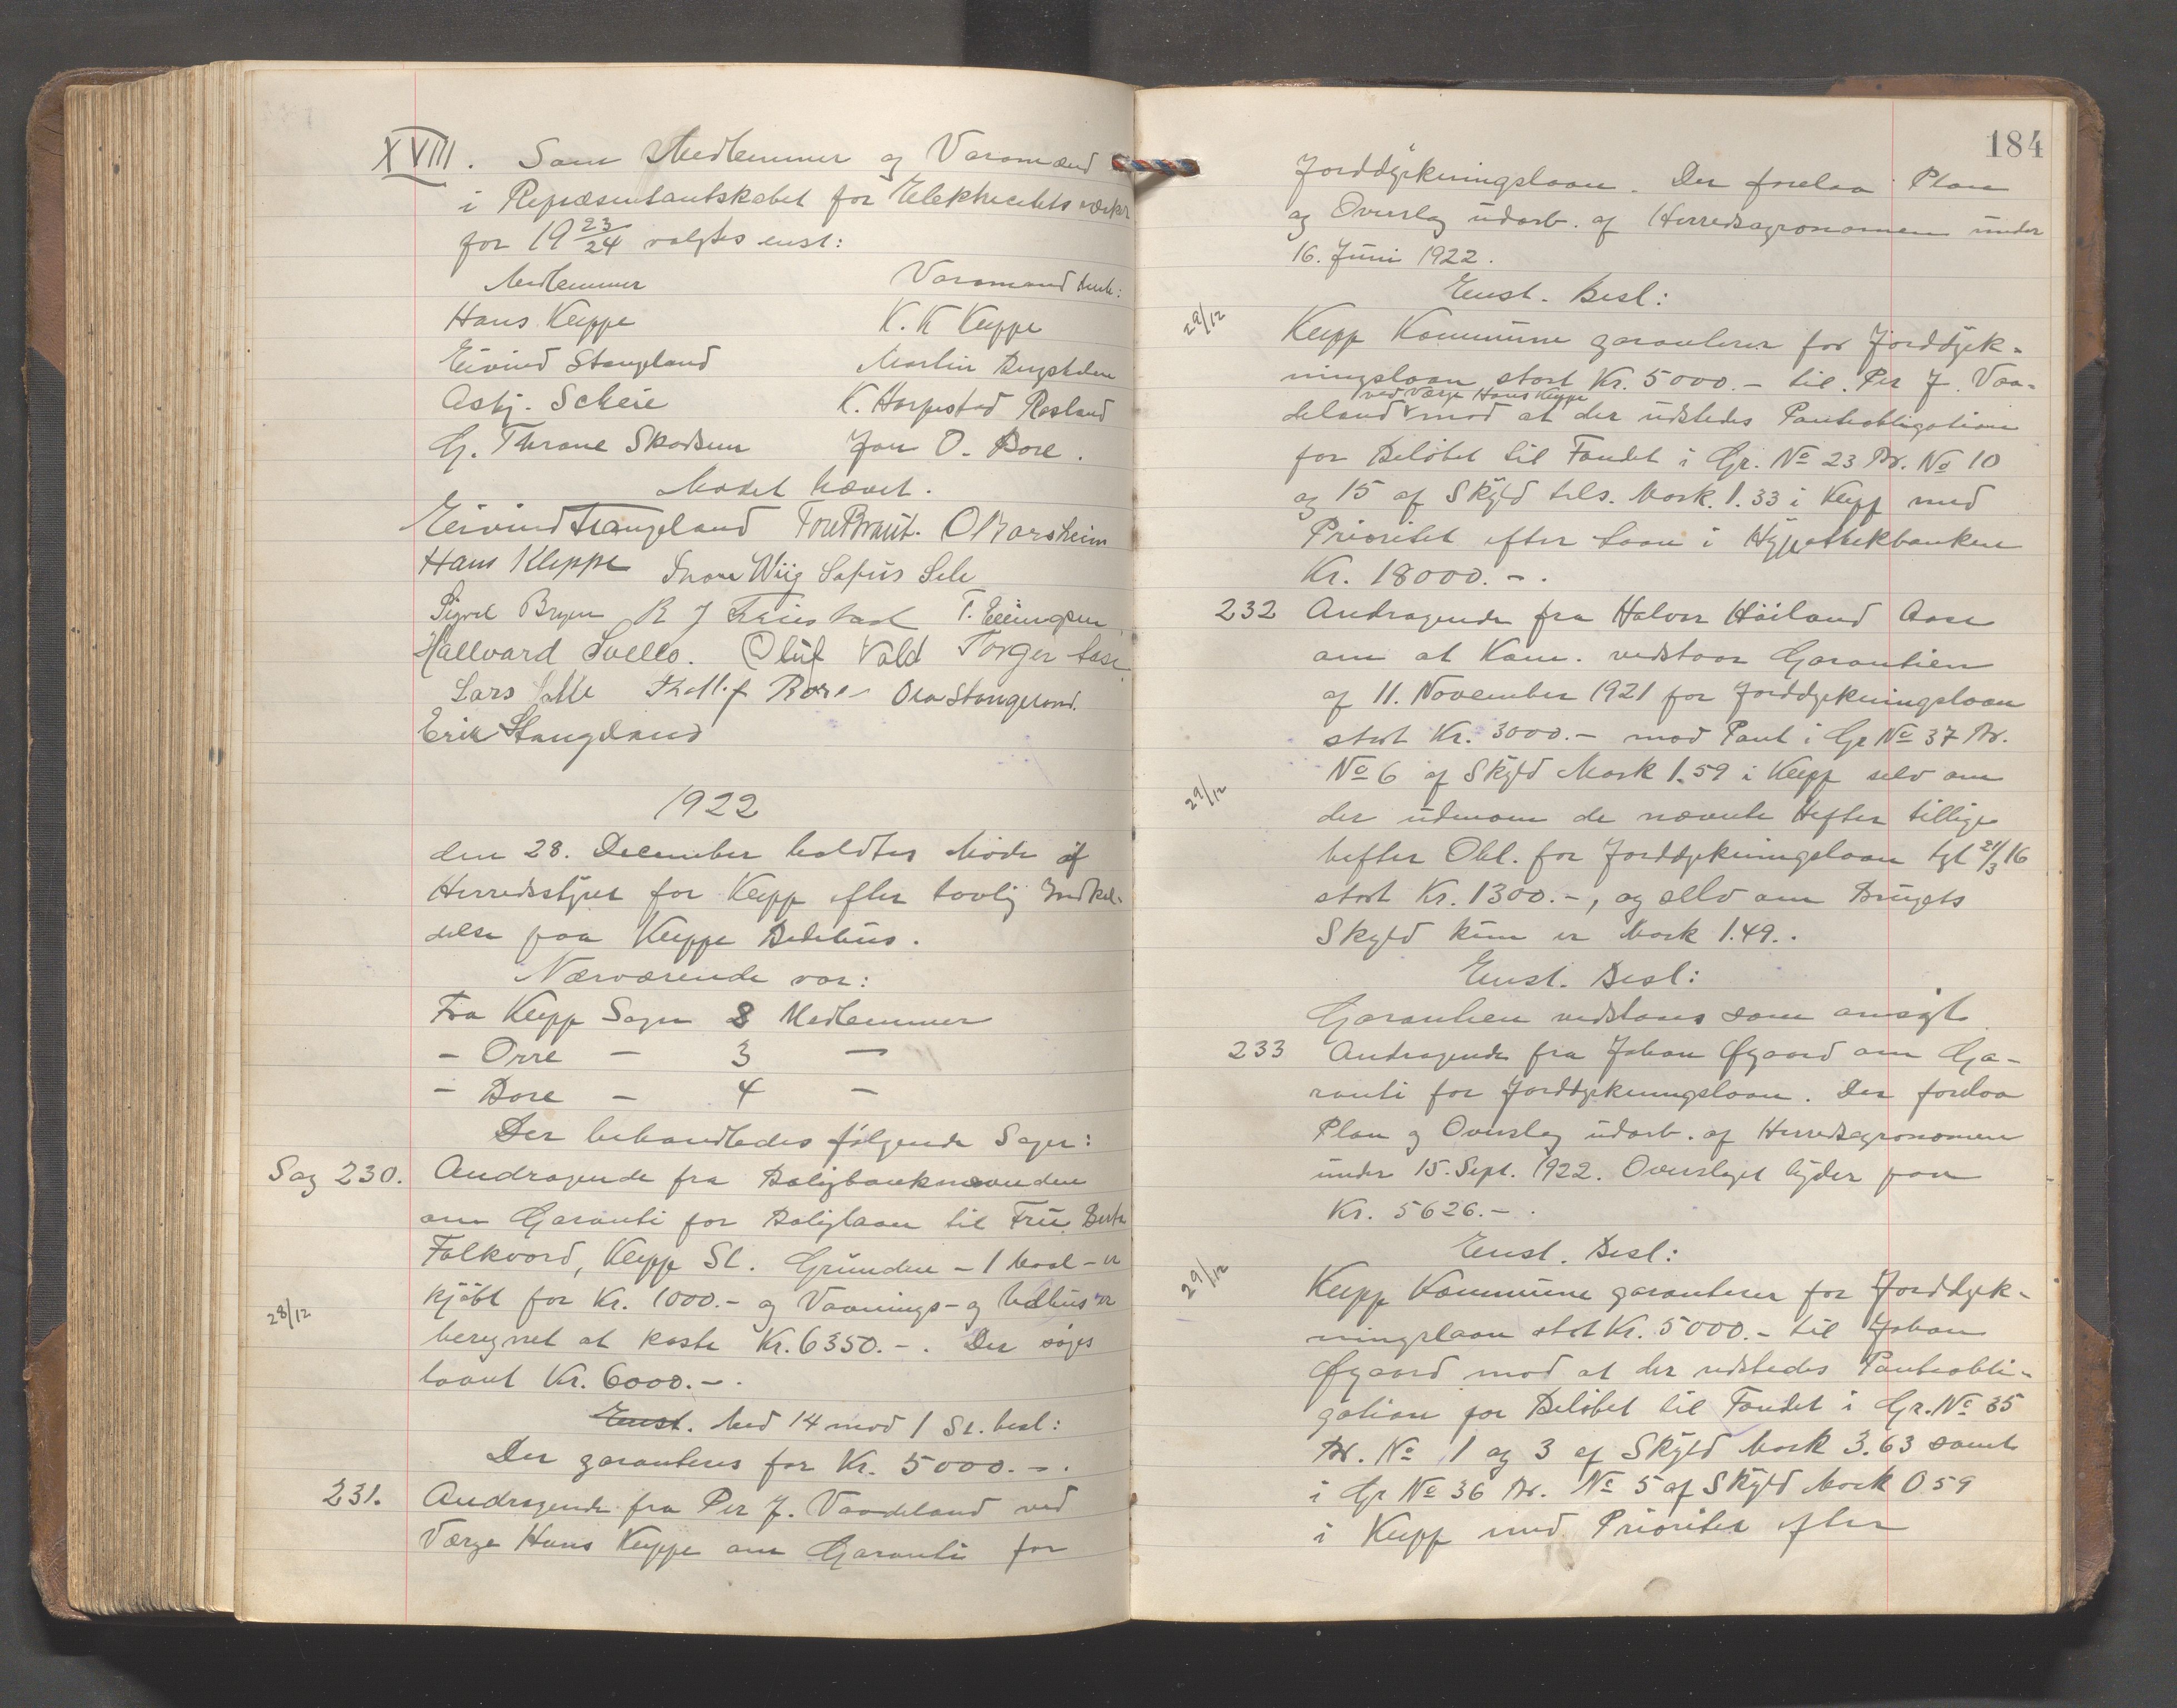 XVIII. Som Medlemmer og Varamænd
i Repræsentantskabet for Elektricitetsverket
for 19 23/24 valgtes enst:
Medlemmer Varamænd
Hans Kleppe K. K Kleppe
Eivind Stangeland Martin
Asbj. Scheie K. Harpestad Rosland
G. Thrane Skadsem Jon O. Bore.
Mødet hævet.
Eivind Stangeland Tore Braut. O Barsheim
Hans Kleppe Snorre Wiig Sofus Sele
Sigvd Bryne R J Friestad T. Ellingsen
Hallvard Svello. Oluf Vold Torger Aase
Lars Salte Thollf Bore Ola Stangeland.
Erik Stangeland
1922
den 28. December holdtes Møde af
Herredsstyret for Klepp efter lovlig Indkal-
delse paa Kleppe Bedehus.
Nærværende var:
Fra Klepp Sogn 8 Medlemmer
- Orre - 3 -
- Bore - 4 -
Der behandledes følgende Sager:
Sag 230. Andragende fra Boligbanknævnden
om Garanti for Boliglaan til Fru Berta
Folkvord, Klepp St. Grunden - 1 Maal - er
28/12 kjøbt for Kr. 1000.- og Vaanings- og Udhus er
beregnet at koste Kr. 6350.-. Der søges
laant Kr. 6000.-.
Enst. Med 14 mod 1 St. besl:
Der garanteres for Kr. 5000.-.
231. Andragende fra Per J. Vaadeland ved
Værge Hans Kleppe om Garanti for
184
Jorddyrkningslaan. Der forelaa Plan
og Overslag udarb. af Herredsagronomen under
16. Juni 1922.
Enst. Besl:
29/12 Klepp Kommune garanterer for Jorddyrk-
ningslaan stort Kr. 5000.- til Per J. Vaa-
ved Værge Hans Kleppe
deland mod at der udstedes Pantobligation
for Beløbet til Fondet i Gr. No 23 Br. No 10
og 15 af Skyld tils. Mark 1.33 i Klepp med
Prioritet efter Laan i Hypothekbanken
Kr. 18000.-.
232 Andragende fra Halvor Høiland Aase
om at Kom. vedstaar Garantien
af 11. November 1921 for Jorddyrkningslaan
stort Kr. 3000.- mod Pant i Gr No 37 Br.
29/12 No 6 af Skyld Mark 1.59 i Klepp selv om
der udenom de nævnte Hefter tillige
hefter Obl. for Jorddyrkningslaan tgl 21/3 16
stort Kr. 1300.-, og selv om Brugets
Skyld kun er Mark 1.49..
Enst. Besl:
Garantien vedstaaes som ansøgt
233 Andragende fra Johan Øgaard om Ga-
ranti for Jorddyrkningslaan. Der forelaa
Plan og Overslag udarb. af Herredsagronomen
under 15. Sept. 1922. Overslaget lyder paa
Kr. 5626.-.
Enst. Besl:
29/12 Klepp Kommune garanterer for Jorddyrk-
ningslaan stort Kr. 5000.- til Johan
Øgaard mod at der udstedes Pantobli-
gation for Beløbet til Fondet i Gr. No 35
Br. No 1 og 3 af Skyld Mark 3.63 samt
i Gr No 36 Br. No 5 af Skyld Mark 0 59
i Klepp med Prioritet efter